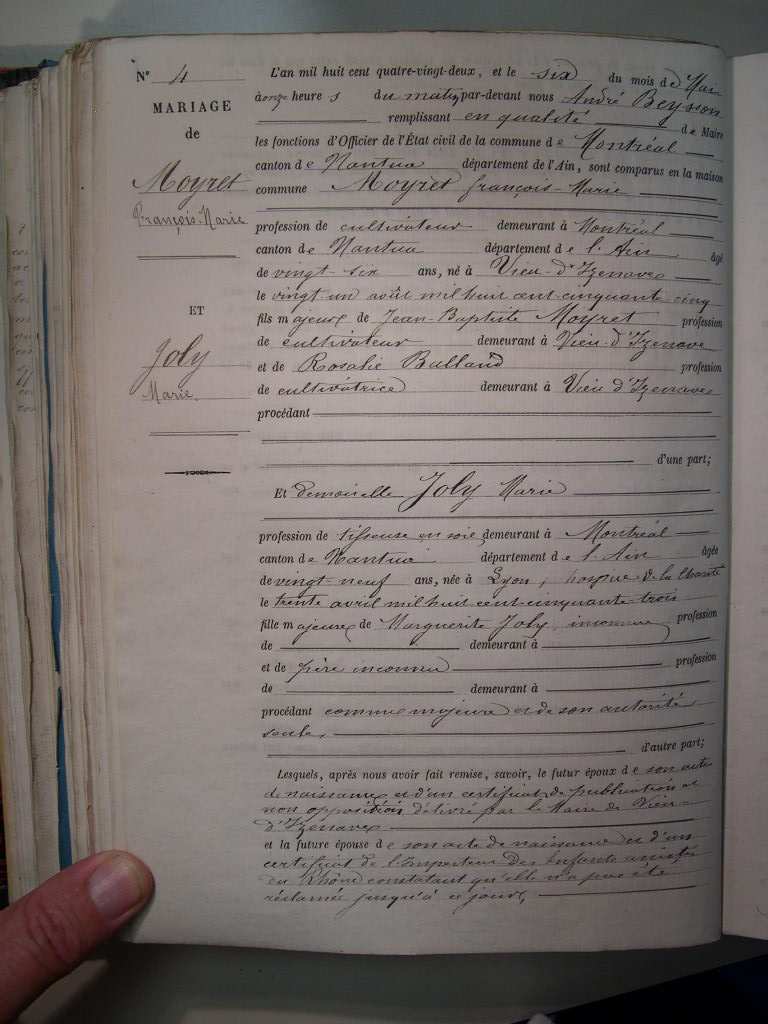 N° 4
MARIAGE
de
Moyret
François-Marie
ET
Joly
Marie.
L'an mil huit cent quatre-vingt-deux, et le six du mois de Mai
à onze heures du matin, par-devant nous André Beysson
remplissant en qualité de Maire
les fonctions d'Officier de l'État civil de la commune de Montréal
canton de Nantua département de l'Ain, sont comparus en la maison
commune Moyret françois-Marie
profession de cultivateur demeurant à Montréal
canton de Nantua département de l'Ain âgé
de vingt-six ans, né à Vieu-d'Izenave
le vingt-un août mil huit cent cinquante cinq
fils majeur de Jean-Baptiste Moyret profession
de cultivateur demeurant à Vieu-d'Izenave
et de Rosalie Balland profession
de cultivatrice demeurant à Vieu d'Izenave
procédant
d'une part;
Et demoiselle Joly Marie
profession de tisseuse en soie demeurant à Montréal
canton de Nantua département de l'Ain âgée
de vingt-neuf ans, née à Lyon, hospice de la Charité
le trente avril mil huit cent cinquante trois
fille majeure de Marguerite Joly, inconnue profession
de demeurant à
et de père inconnu profession
de demeurant à
procédant comme majeure et de son autorité
seule,
d'autre part;
Lesquels, après nous avoir fait remise, savoir, le futur époux de son acte
de naissance et d'un certificat de publication et
non opposition délivré par le Maire de Vieu-
d'Izenave
et la future épouse de son acte de naissance et d'un
certificat de l'Inspecteur des Enfants assistés
du Rhône constatant qu'elle n'a pas été
réclamée jusqu'à ce jour,